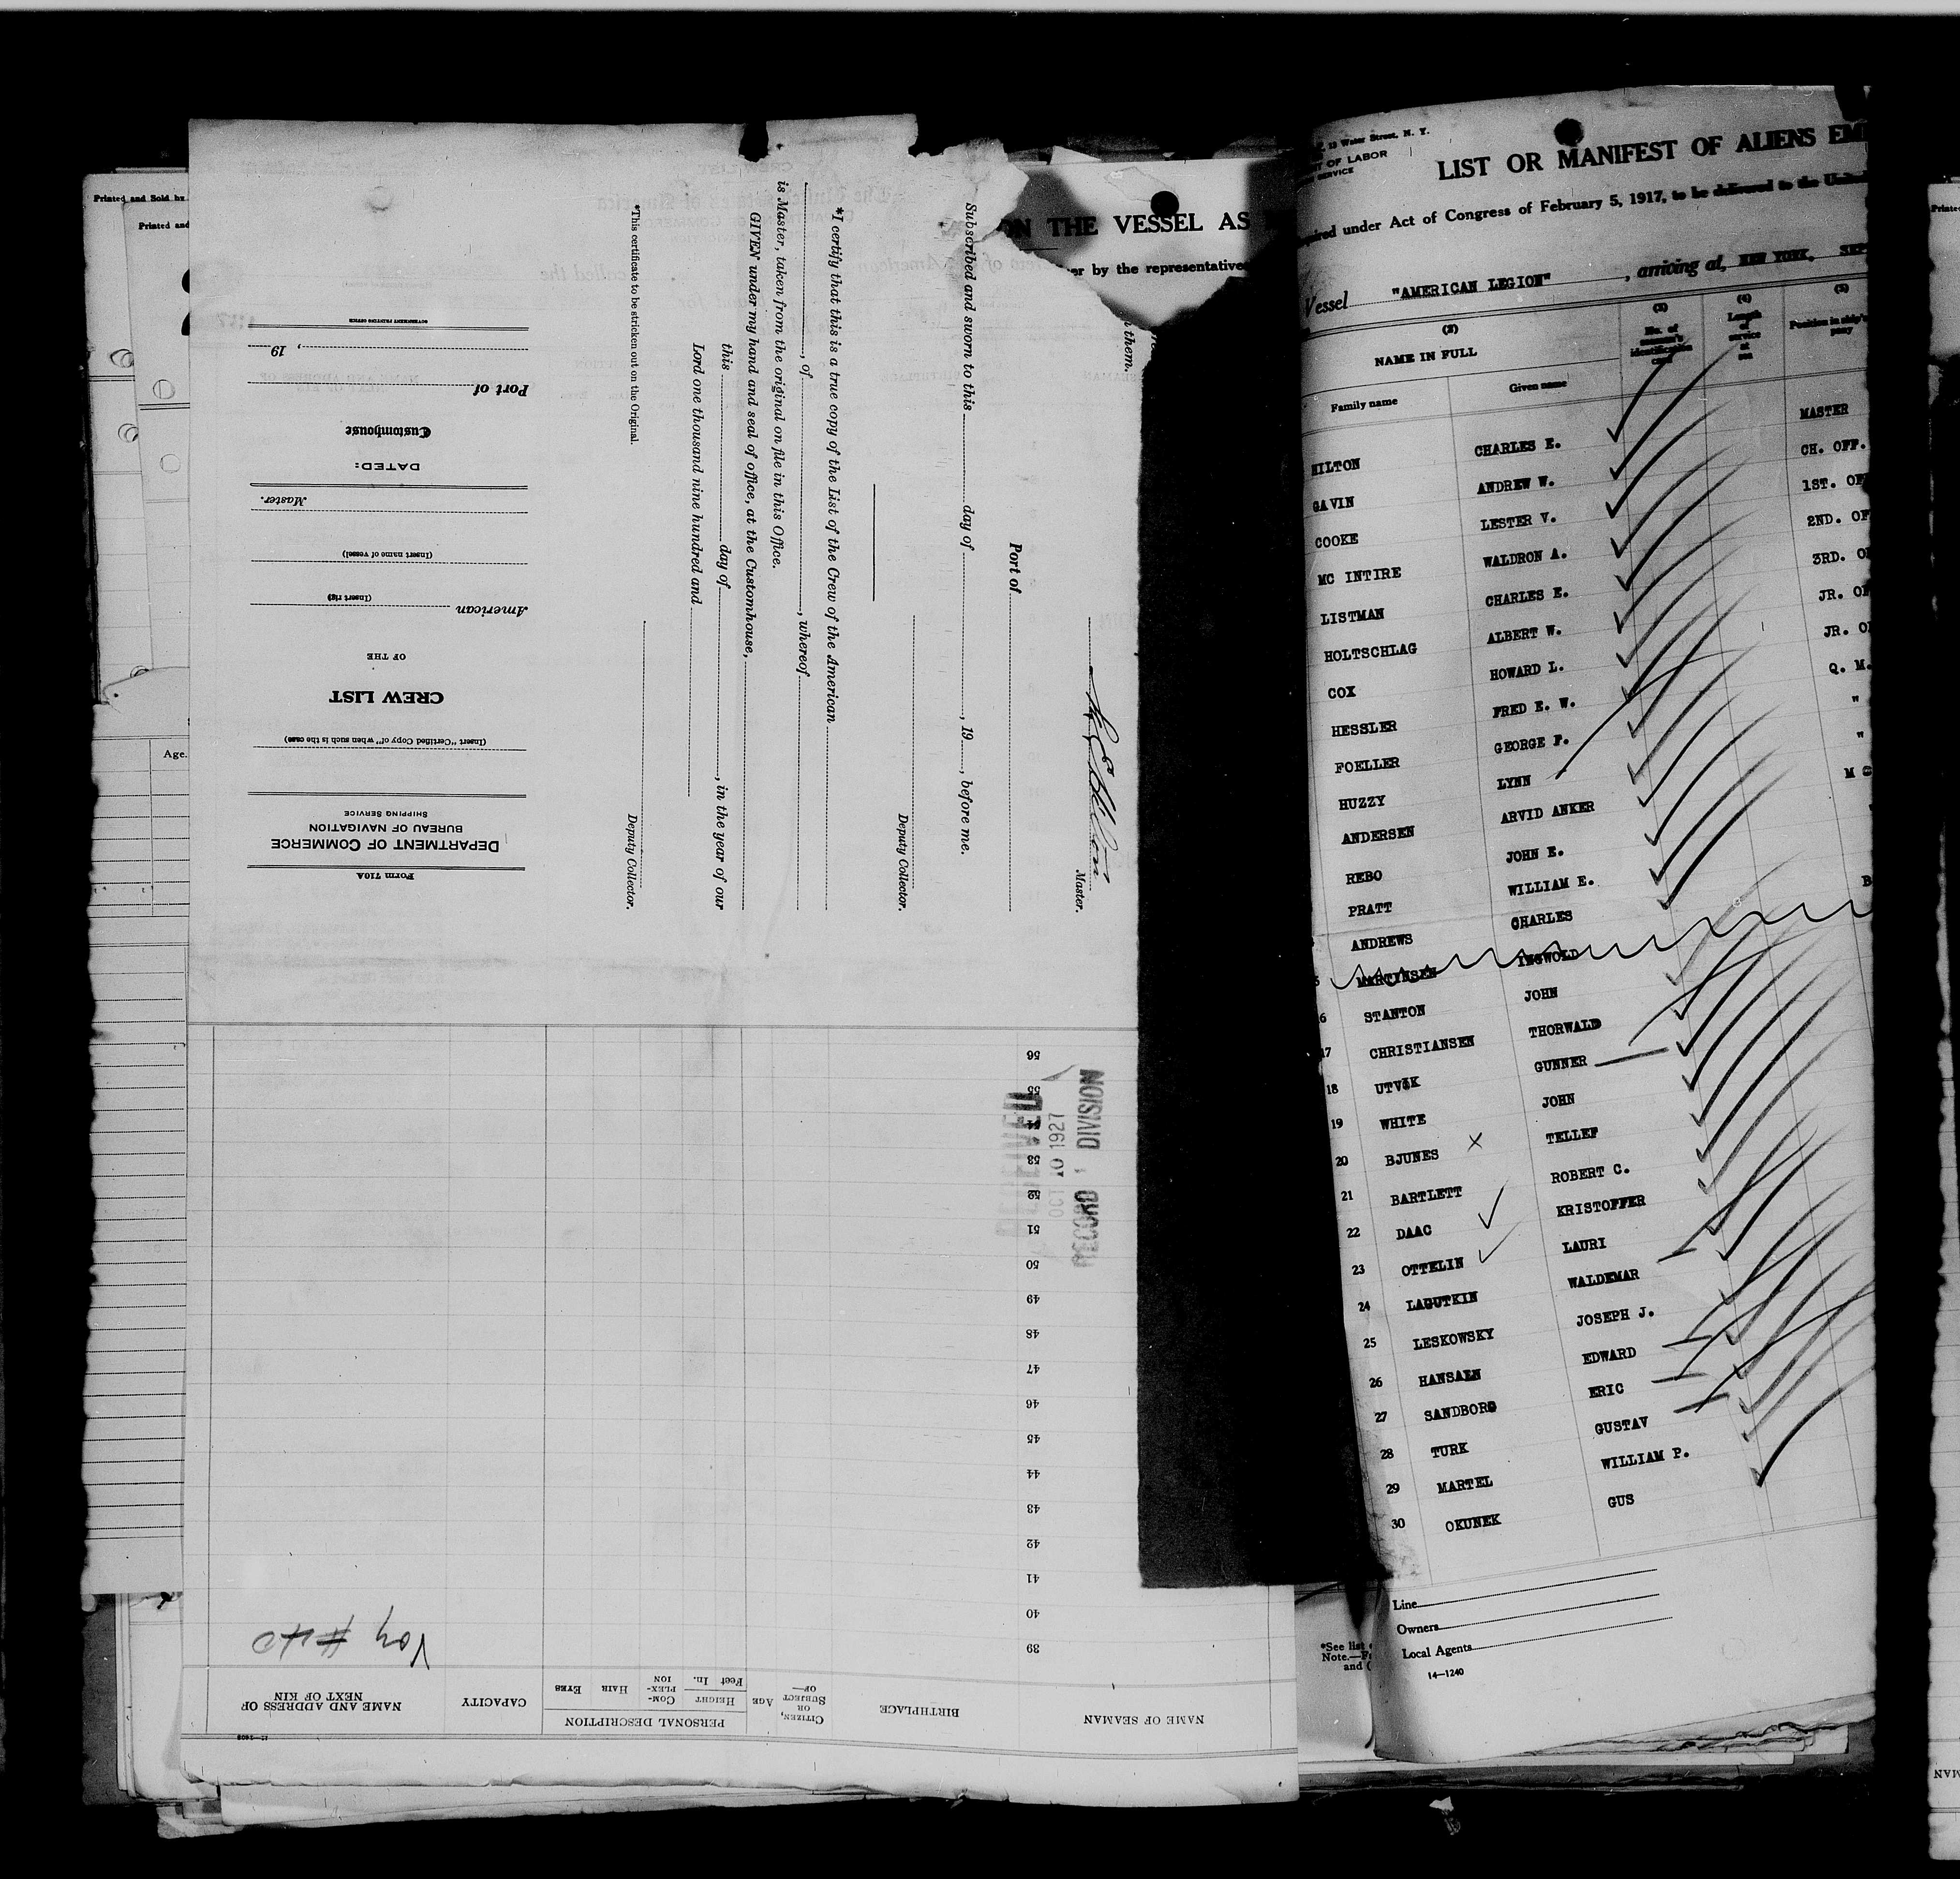 Printed and Sold by
Printed and
Age.
Form 710A
DEPARTMENT OF COMMERCE
BUREAU OF NAVIGATION
SHIPPING SERVICE
(Insert "Certified Copy of" when such is the case)
CREW LIST
OF THE
American
(Insert rig)
(Insert name of vessel)
Master.
DATED:
Customhouse
Port of
, 19
GOVERNMENT PRINTING OFFICE
n them.
Master.
Port of
Subscribed and sworn to this day of , 19 , before me.
Deputy Collector.
*I certify that this is a true copy of the List of the Crew of the American
, of , whereof
is Master, taken from the original on file in this Office.
GIVEN under my hand and seal of office, at the Customhouse,
this day of , in the year of our
Lord one thousand nine hundred and
Deputy Collector.
*This certificate to be stricken out on the Original.
ON THE VESSEL AS
er by the representative
RECEIVED
OCT 10 1927
RECORD DIVISION
NAME OF SEAMAN
BIRTHPLACE
CITIZEN, OR SUBJECT OF—
AGE
PERSONAL DESCRIPTION
HEIGHT
Feet In.
COM-PLEX-ION
HAIR
EYES
CAPACITY
NAME AND ADDRESS OF NEXT OF KIN
39
40
41
42
43
44
45
46
47
48
49
50
51
52
53
54
55
56
Voy #40
13 Water Street, N. Y.
OF LABOR
SERVICE
LIST OR MANIFEST OF ALIENS EM
quired under Act of Congress of February 5, 1917, to be delivered to the United
Vessel "AMERICAN LEGION" , arriving at, NEW YORK, SEP
(2)
(3)
(4)
(5)
NAME IN FULL
No. of seaman's identification card
Length of service at sea
Position in ship's
pany
Family name
Given name
HILTON CHARLES E. MASTER
GAVIN ANDREW W. CH. OFF.
COOKE LESTER V. 1ST. OF
MC INTIRE WALDRON A. 2ND. OF
LISTMAN CHARLES E. 3RD. O
HOLTSCHLAG ALBERT W. JR. O
COX HOWARD L. JR. O
HESSLER FRED E. W. Q. M.
FOELLER GEORGE F. "
HUZZY LYNN "
ANDERSEN ARVID ANKER M
REBO JOHN E.
PRATT WILLIAM E.
ANDREWS CHARLES B
MARTINSEN INGWOLD
6 STANTON JOHN
17 CHRISTIANSEN THORWALD
18 UTVIK GUNNER
19 WHITE JOHN
20 BJUNES TELLEF
21 BARTLETT ROBERT C.
22 DAAC KRISTOFFER
23 OTTELIN LAURI
24 LAGUTKIN WALDEMAR
25 LESKOWSKY JOSEPH J.
26 HANSAEN EDWARD
27 SANDBORG ERIC
28 TURK GUSTAV
29 MARTEL WILLIAM P.
30 OKUNEK GUS
Line
Owners
Local Agents
14—1240
*See list
Note.—F
and (